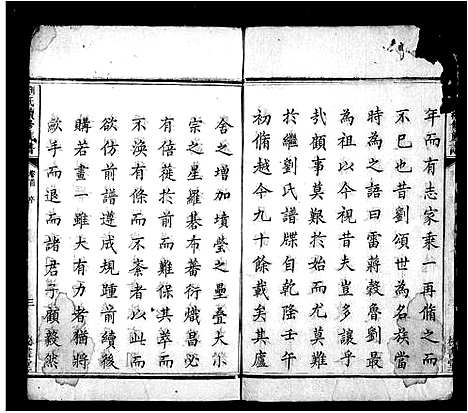 年而有志家乘一再脩之而
不已也昔劉頌世為名族當
時為之語曰雷蔣穀魯劉最
為祖以今視昔夫豈多讓乎
哉顧事莫艱於始而尤莫難
於繼劉氏譜牒自乾隆壬午
初脩越今九十餘載矣其廬
舍之增加墳塋之壘叠大宗小
宗之星羅碁布蕃衍熾昌必
有倍蓰於前而難保其萃而
不渙有條而不紊者以此而
欲仿前譜遵成規踵前續後
購若畫一雖大有力者猶將
歛手而退而諸君子顧毅然
卷首
三